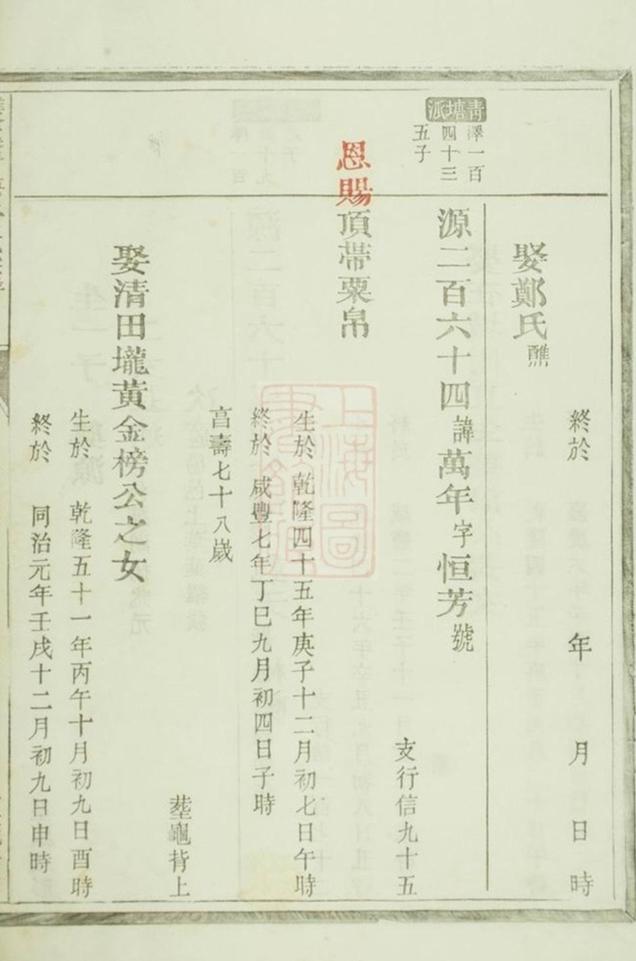 終於 年 月 日 時
娶鄭氏醮
青塘派
澤一百
四十三
五子
源二百六十四諱萬年字恒芳號
支行信九十五
恩賜頂帶粟帛
生於乾隆四十五年庚子十二月初七日午時
終於咸豐七年丁巳九月初四日子時
享壽七十八歲
塟龜背上
娶清田壠黃金榜公之女
生於乾隆五十一年丙午十月初九日酉時
終於同治元年壬戌十二月初九日申時
上海圖書館藏